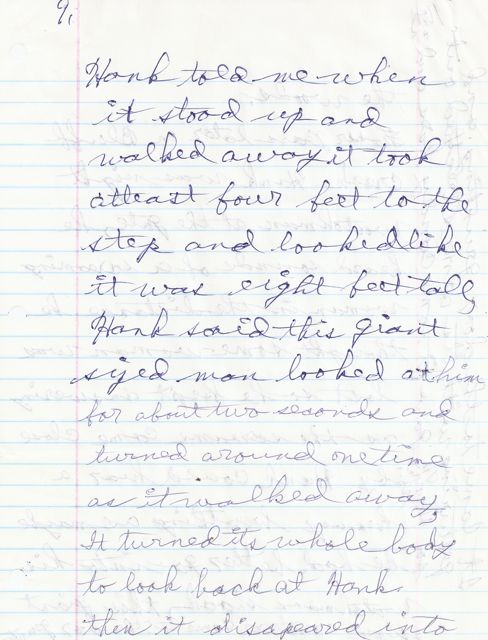 9,
Hank told me when
it stood up and
walked away it took
atleast four feet to the
step and looked like
it was eight feet tall,
Hank said this giant
sized man looked at him
for about two seconds and
turned around one time
as it walked away,
It turned its whole body
to look back at Hank.
then it disapeared into